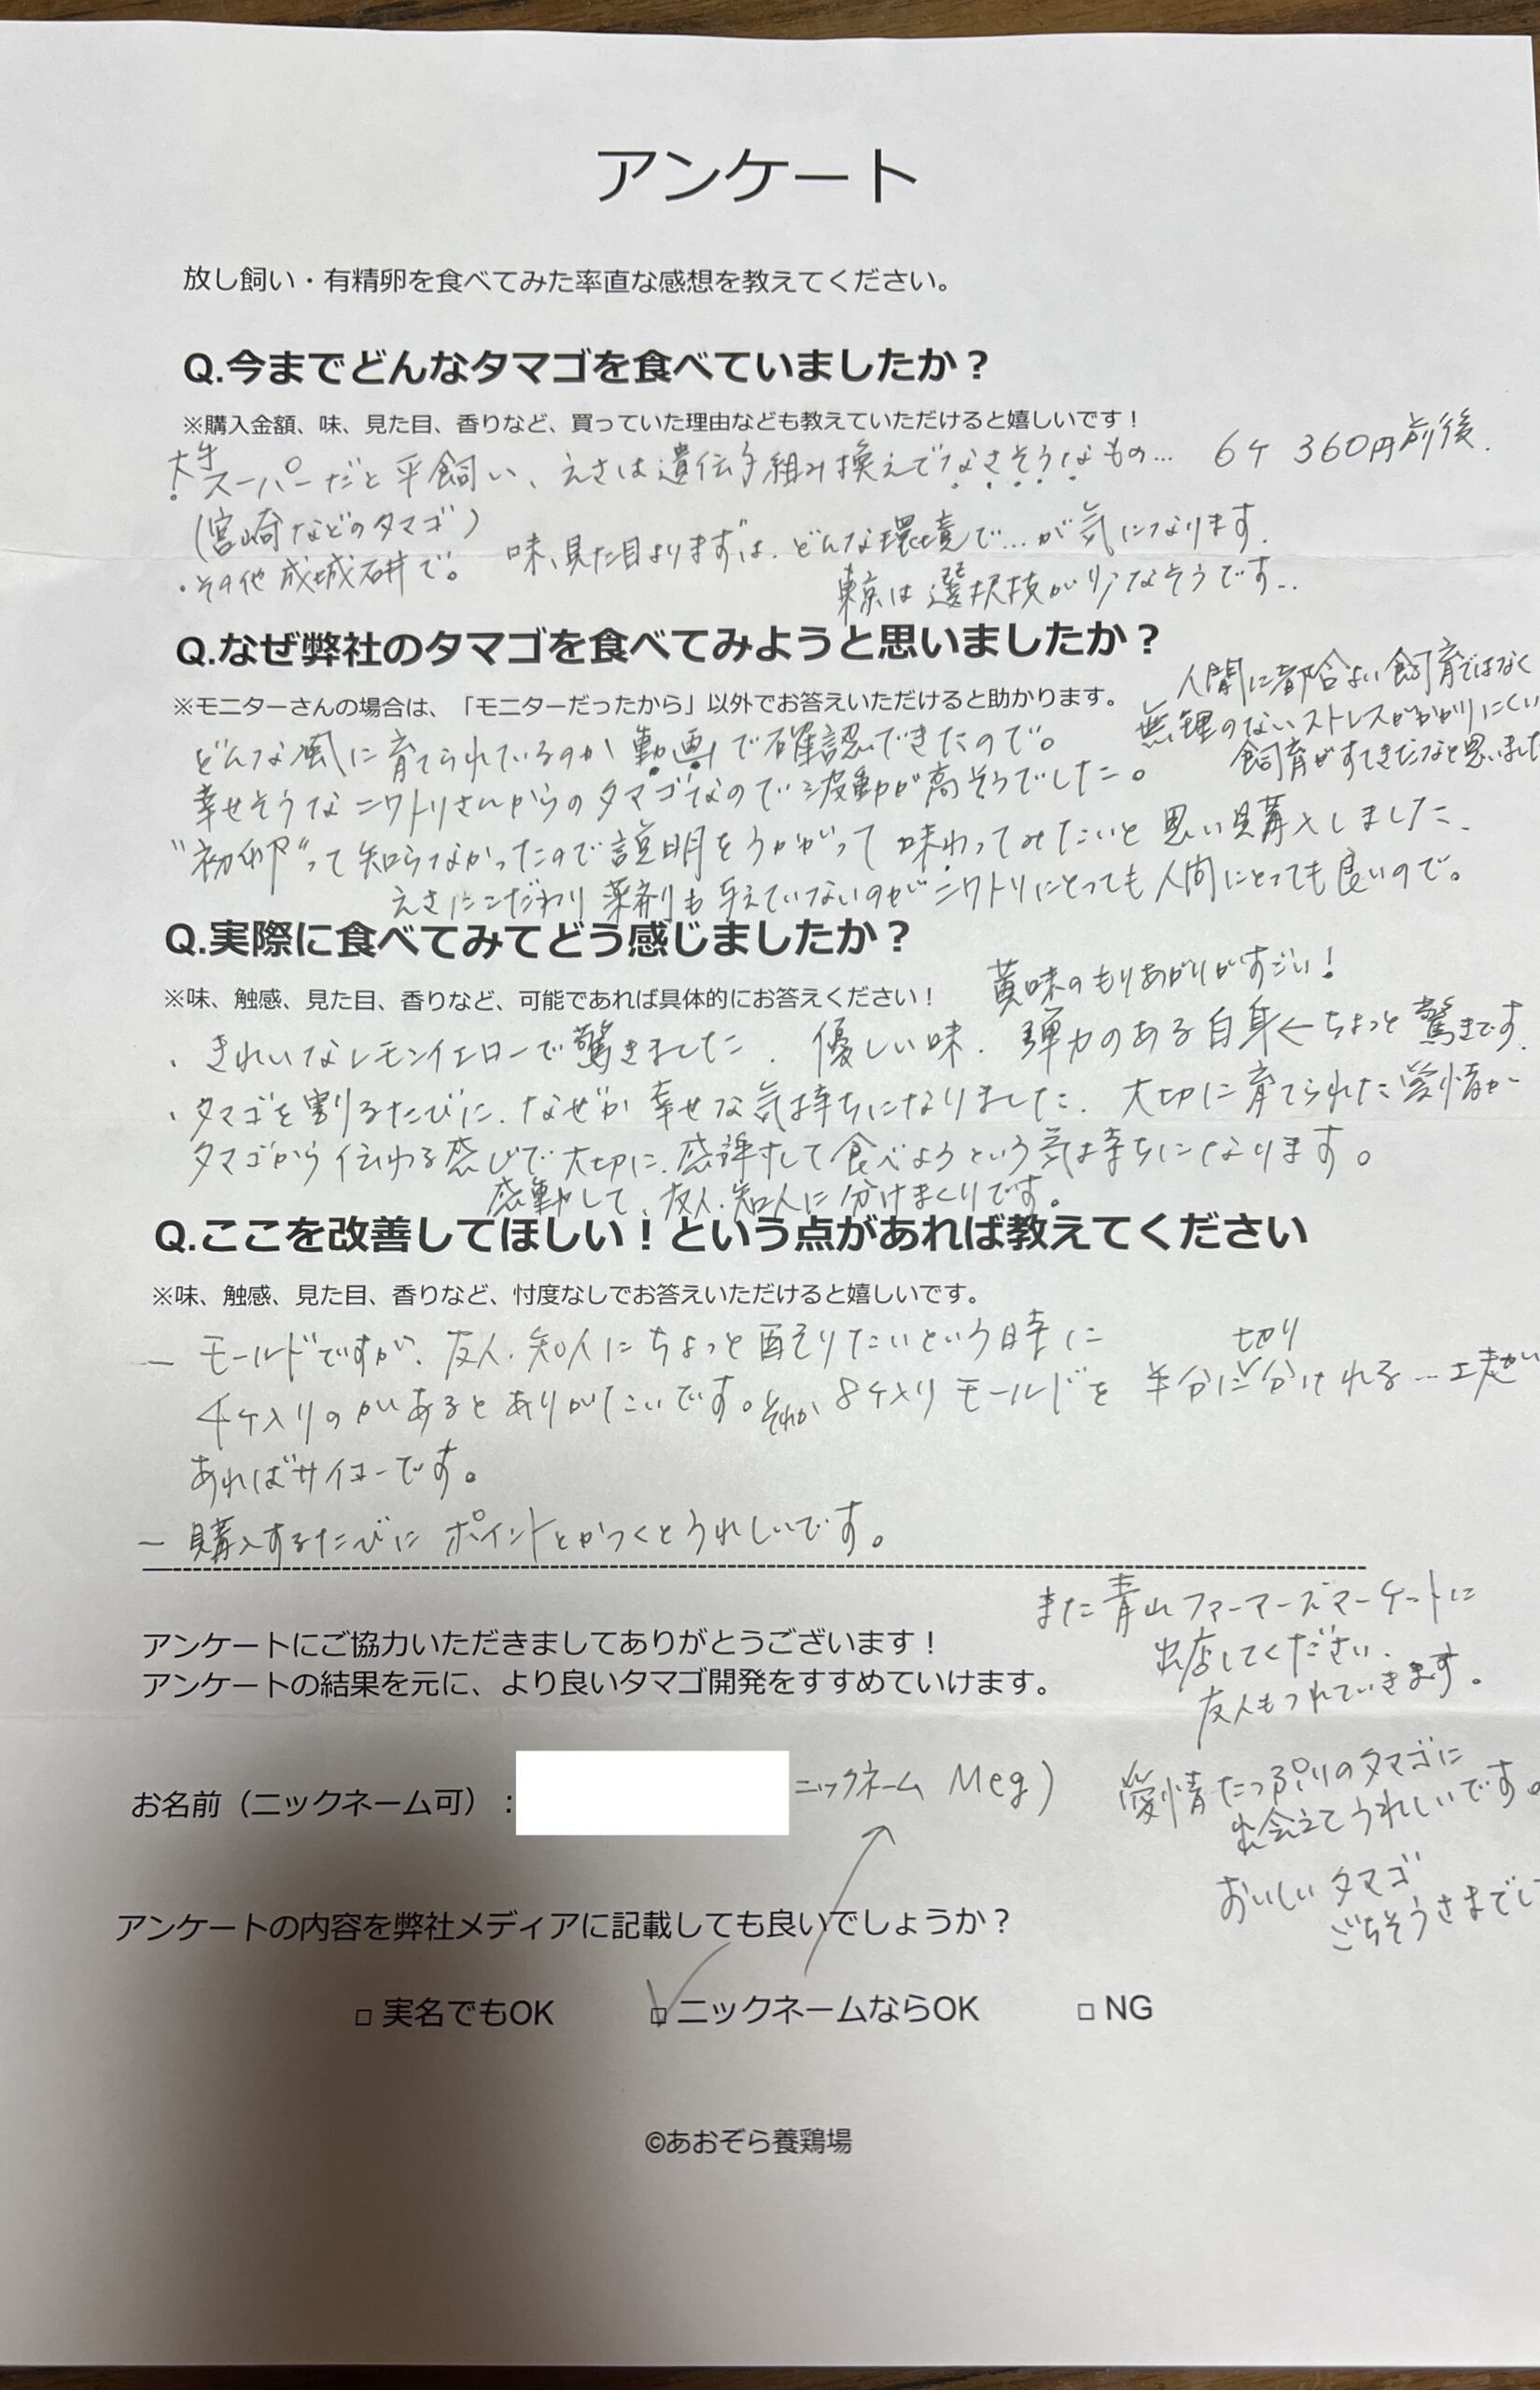 アンケート
放し飼い・有精卵を食べてみた率直な感想を教えてください。
Q.今までどんなタマゴを食べていましたか？
※購入金額、味、見た目、香りなど、買っていた理由なども教えていただけると嬉しいです！
・大手スーパーだと平飼い、えさは遺伝子組み換えでなさそうなもの… 6ケ 360円前後.
(宮崎などのタマゴ)
・その他成城石井で。 味、見た目よりまずは、どんな環境で…が気になります.
東京は選択枝が少なそうです…
Q.なぜ弊社のタマゴを食べてみようと思いましたか？
※モニターさんの場合は、「モニターだったから」以外でお答えいただけると助かります。
人間に都合よい飼育ではなく
無理のないストレスがかかりにくい
飼育がすてきだなと思いました
どんな風に育てられているのか動画で確認できたので。
幸せそうなニワトリさんからのタマゴなので波動が高そうでした。
"初卵"って知らなかったので説明をうかがって味わってみたいと思い購入しました、
えさにこだわり薬剤も与えていないのがニワトリにとっても人間にとっても良いので。
Q.実際に食べてみてどう感じましたか？
※味、触感、見た目、香りなど、可能であれば具体的にお答えください！
黄味のもりあがりがすごい！
・きれいなレモンイエローで驚きました. 優しい味. 弾力のある白身←ちょっと驚きです.
・タマゴを割るたびに、なぜか幸せな気持ちになりました. 大切に育てられた愛情が
タマゴから伝わる感じで大切に、感謝して食べようという気持ちになります。
感動して、友人、知人に分けまくりです。
Q.ここを改善してほしい！という点があれば教えてください
※味、触感、見た目、香りなど、忖度なしでお答えいただけると嬉しいです。
－ モールドですが、友人、知人にちょっと配りたいという時に
4ケ入りのがあるとありがたいです。それか8ケ入りモールドを半分に切り分けれる…工夫が
あればサイコーです。
－ 購入するたびにポイントとかつくとうれしいです。
また青山ファーマーズマーケットに
出店してください.
友人もつれていきます。
アンケートにご協力いただきましてありがとうございます！
アンケートの結果を元に、より良いタマゴ開発をすすめていけます。
お名前（ニックネーム可）： ニックネーム Meg)
愛情たっぷりのタマゴに
出会えてうれしいです。
おいしいタマゴ
ごちそうさまでし
アンケートの内容を弊社メディアに記載しても良いでしょうか？
□ 実名でもOK □ ニックネームならOK □ NG
©あおぞら養鶏場